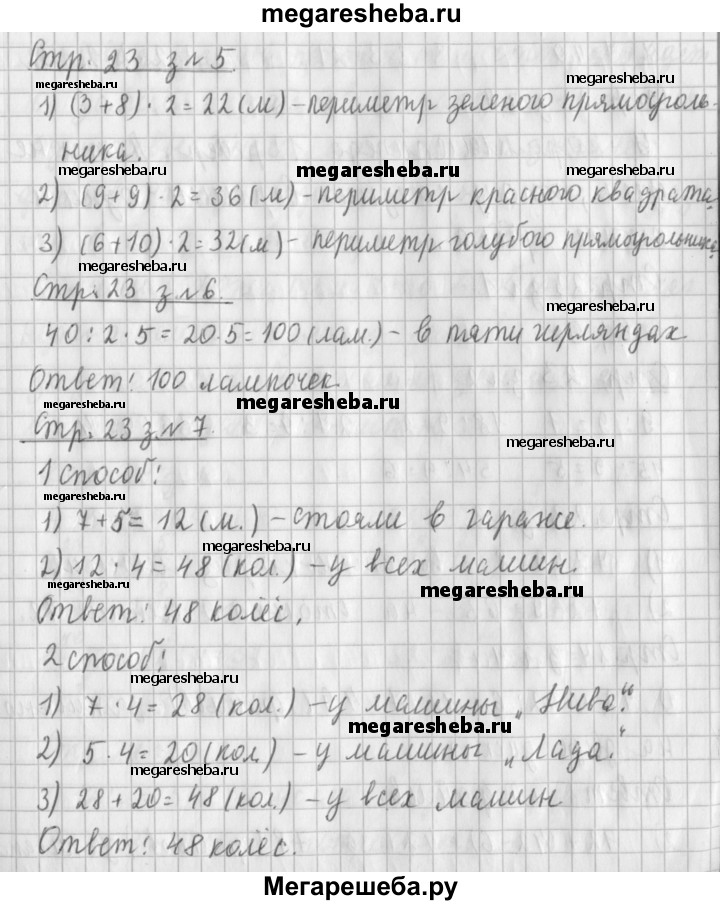 megaresheba.ru
Стр. 23 з № 5.
megaresheba.ru
megaresheba.ru
1) (3+8) · 2 = 22(м) – периметр зеленого прямоуголь-
ника.
megaresheba.ru
megaresheba.ru
megaresheba.ru
2) (9+9) · 2 = 36(м) – периметр красного квадрата.
3) (6+10) · 2 = 32(м) – периметр голубого прямоугольника.
megaresheba.ru
Стр. 23 з № 6.
megaresheba.ru
40 : 2 · 5 = 20 · 5 = 100 (лам.) – в пяти гирляндах.
Ответ: 100 лампочек.
megaresheba.ru
megaresheba.ru
Стр. 23 з. № 7.
megaresheba.ru
1 способ:
megaresheba.ru
1) 7 + 5 = 12 (м.) – стояли в гараже.
megaresheba.ru
2) 12 · 4 = 48 (кол.) – у всех машин.
megaresheba.ru
Ответ: 48 колёс.
2 способ:
megaresheba.ru
1) 7 · 4 = 28 (кол.) – у машины „Нива“.
megaresheba.ru
2) 5 · 4 = 20 (кол.) – у машины „Лада“.
megaresheba.ru
3) 28 + 20 = 48 (кол.) – у всех машин.
Ответ: 48 колёс.
Мегарешеба.ру